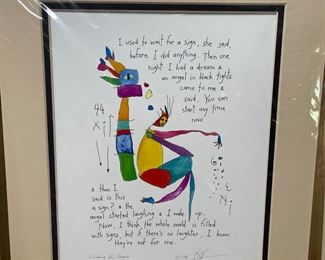 I used to wait for a sign, she said,
before I did anything. Then one
night I had a dream &
an angel in black tights
came to me &
said, You can
start any time
now
& then I
said is this
a sign? & the
angel started laughing & I woke up.
Now, I think the whole world is filled
with signs, but if there's no laughter, I know
they're not for me.
Waiting for Signs